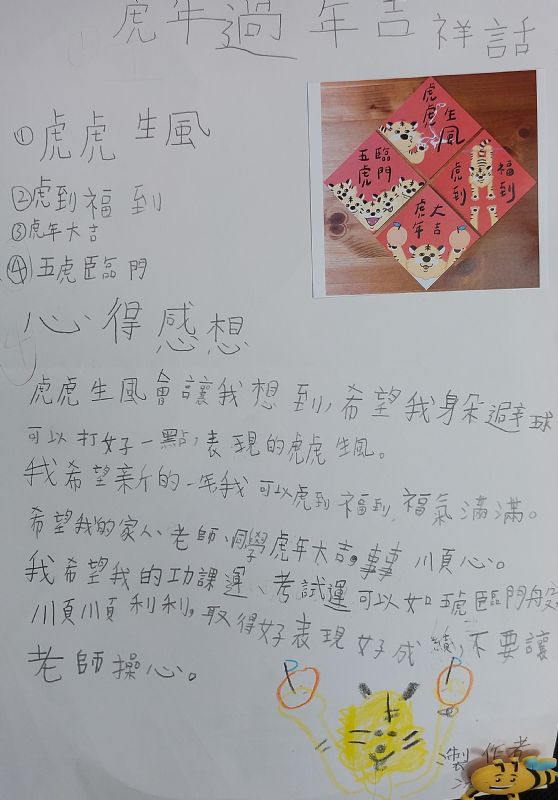 虎年過年吉祥話
①虎虎生風
②虎到福到
③虎年大吉
④五虎臨門
虎虎生風
五虎臨門
虎到福到
虎年大吉
心得感想
虎虎生風會讓我想到,希望我躲避球
可以打好一點,表現的虎虎生風。
我希望新的一年我可以虎到福到,福氣滿滿。
希望我的家人、老師、同學虎年大吉,事事順心。
我希望我的功課運、考試運可以如五虎臨門般
順順利利,取得好表現好成績,不要讓
老師操心。
製作者